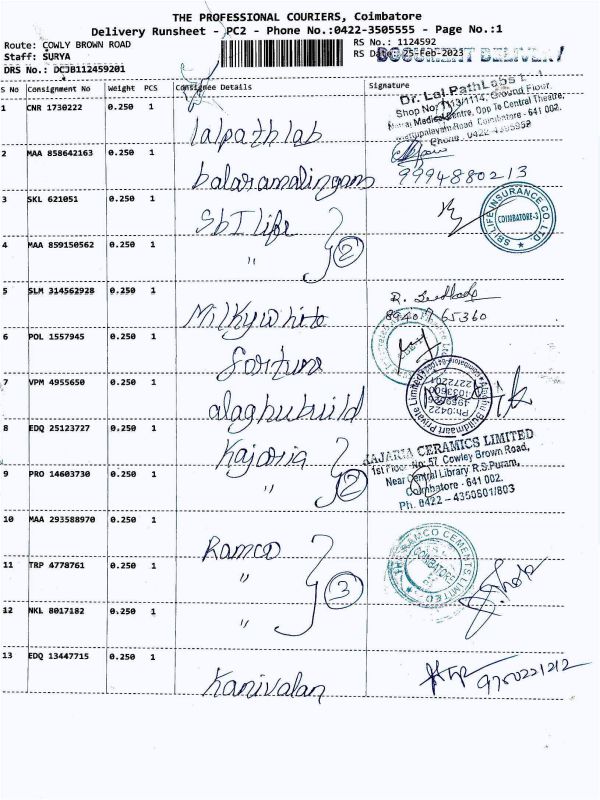 THE PROFESSIONAL COURIERS, Coimbatore
Delivery Runsheet - PC2 - Phone No.:0422-3505555 - Page No.:1
Route: COWLY BROWN ROAD
Staff: SURYA
DRS No.: DCJB112459201
RS No.: 1124592
RS Date: 25-Feb-2023
DOCUMENT DELIVERY
S No Consignment No Weight PCS Consignee Details Signature
1 CNR 1730222 0.250 1 lalpathlab
Dr. Lal PathLabs
Shop No. 1113/1114, Ground Floor,
Medical Centre, Opp To Central Theatre,
Mettupalayam Road, Coimbatore - 641 002.
Phone: 0422-4395352
2 MAA 858642163 0.250 1 balaramalingam 9994880213
3 SKL 621051 0.250 1 SbI life
SBI LIFE INSURANCE CO. LTD
COIMBATORE-3
4 MAA 859150562 0.250 1 " 2
5 SLM 314562928 0.250 1 Milkywhite
89407 65360
6 POL 1557945 0.250 1 fortune
7 VPM 4955650 0.250 1 alaghubuild
Buildmaan Private Limited
Ph:0422
8 EDQ 25123727 0.250 1 Kajaria
KAJARIA CERAMICS LIMITED
1st Floor No: 57, Cowley Brown Road,
Near Central Library R.S.Puram,
Coimbatore - 641 002.
Ph. 0422 - 4350801/803
9 PRO 14603730 0.250 1 " 2
10 MAA 293588970 0.250 1 Ramco
THE RAMCO CEMENTS LIMITED
COIMBATORE
11 TRP 4778761 0.250 1 " 3
12 NKL 8017182 0.250 1 "
13 EDQ 13447715 0.250 1 Kanivalan 9750221212